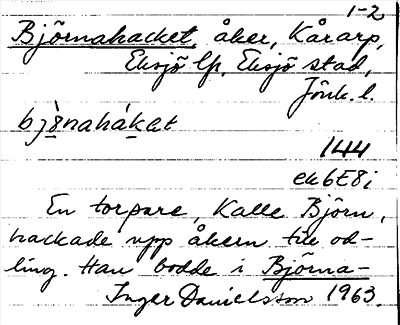 1-2
Björnahacket, åker, Kårarp,
Eksjö lfs, Eksjö stad,
Jönk. l.
bjö̀nahákat
144
ek6E8i
En torpare, Kalle Björn,
hackade upp åkern till od-
ling. Han bodde i Björna-
Inger Danielsson 1963.